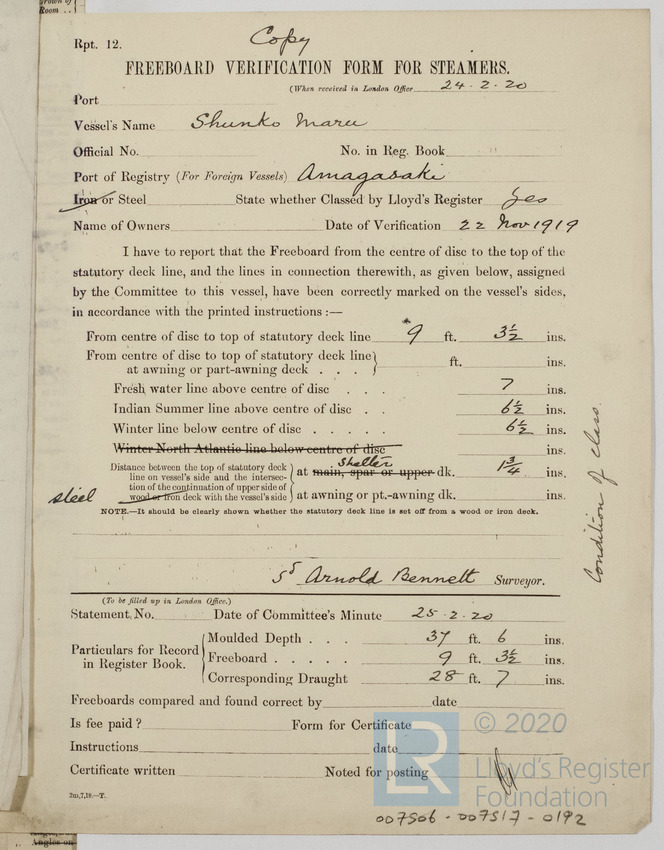 Room . .
Rpt. 12.
Copy
FREEBOARD VERIFICATION FORM FOR STEAMERS.
(When received in London Office 24.2.20
Port
Vessel's Name Shunko Maru
Official No. No. in Reg. Book
Port of Registry (For Foreign Vessels) Amagasaki
Iron or Steel State whether Classed by Lloyd's Register Yes
Name of Owners Date of Verification 22 Nov 1919
I have to report that the Freeboard from the centre of disc to the top of the
statutory deck line, and the lines in connection therewith, as given below, assigned
by the Committee to this vessel, have been correctly marked on the vessel's sides,
in accordance with the printed instructions :—
From centre of disc to top of statutory deck line 9 ft. 3½ ins.
From centre of disc to top of statutory deck line
at awning or part-awning deck . . . ft. ins.
Fresh water line above centre of disc . . . 7 ins.
Indian Summer line above centre of disc . . 6½ ins.
Winter line below centre of disc . . . . . 6½ ins.
Winter North Atlantic line below centre of disc ins.
Distance between the top of statutory deck
line on vessel's side and the intersec-
tion of the continuation of upper side of
wood or iron deck with the vessel's side
steel
Shelter
at main, spar or upper dk. 1¾ ins.
at awning or pt.-awning dk. ins.
NOTE.—It should be clearly shown whether the statutory deck line is set off from a wood or iron deck.
Condition of class.
Sd Arnold Bennett Surveyor.
(To be filled up in London Office.)
Statement No. Date of Committee's Minute 25.2.20
Particulars for Record
in Register Book.
Moulded Depth . . . 37 ft. 6 ins.
Freeboard . . . . . 9 ft. 3½ ins.
Corresponding Draught 28 ft. 7 ins.
Freeboards compared and found correct by date
Is fee paid ? Form for Certificate
Instructions date
Certificate written Noted for posting
2m,7,19.—T.
LR © 2020
Lloyd's Register
Foundation
007506-007517-0192
Angles on